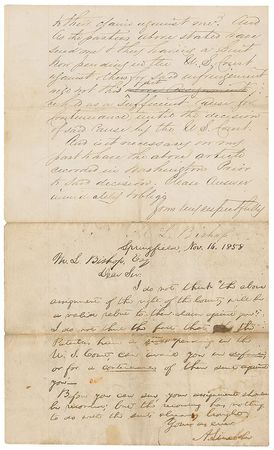 to their claim against me? And
as the parties above stated have
sued me & others having a suit
now pending in the U.S. Court
against others for said infringement
not this
be is as a sufficient cause for
continuance until the decision
of said cause by the U.S. Court.
This is necessary on my
part to have the above article
recorded in Washington Prior
to said decision. Please answer
immediately & oblige
Yours very respectfully
L. Bishop
Springfield, Nov. 16. 1858
W. L. Bishop, Esq
Dear Sir.
I do not think the above
assignment of the right of the County will be
a valid to their claim against you.
I do not think the fact that the
Patentees have a suit pending in the
U.S. Court can avail you in
or for a continuance of their suit against
you—
Before you can your assignment should
be recorded; but the recording has nothing
to do with the suits already brought.
Yours as ever
A. Lincoln